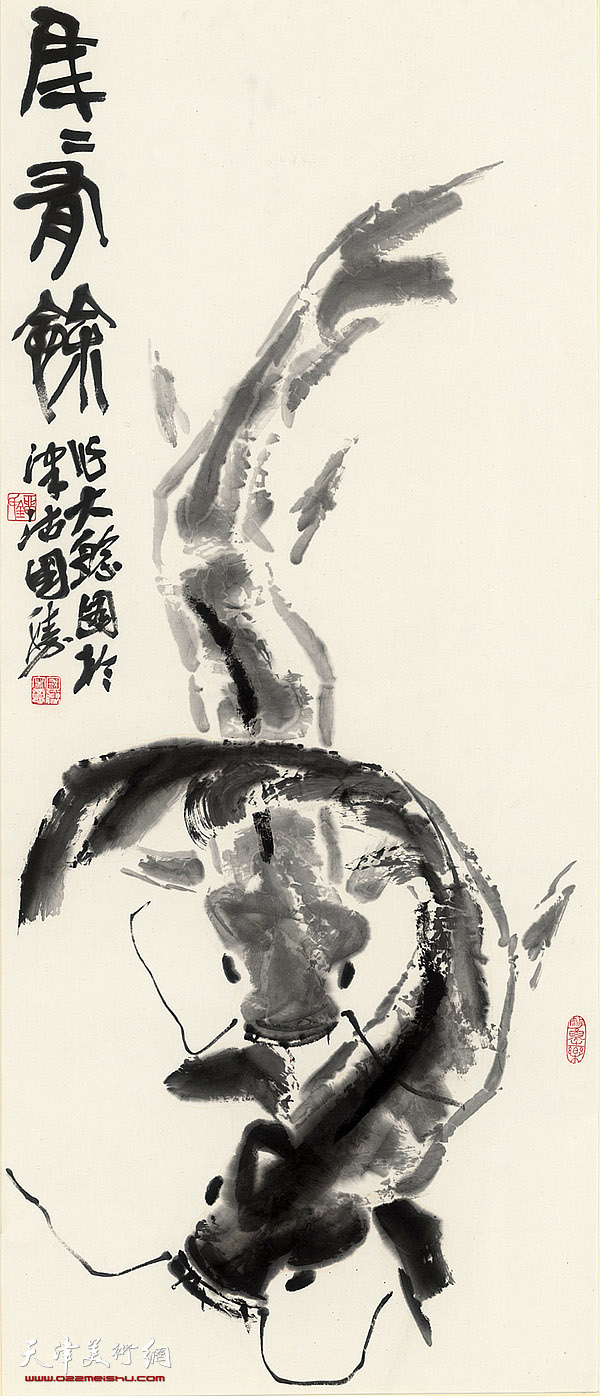 年〻有餘
作大鯰圖於
津沽國
天津美術網
www.022meishu.com